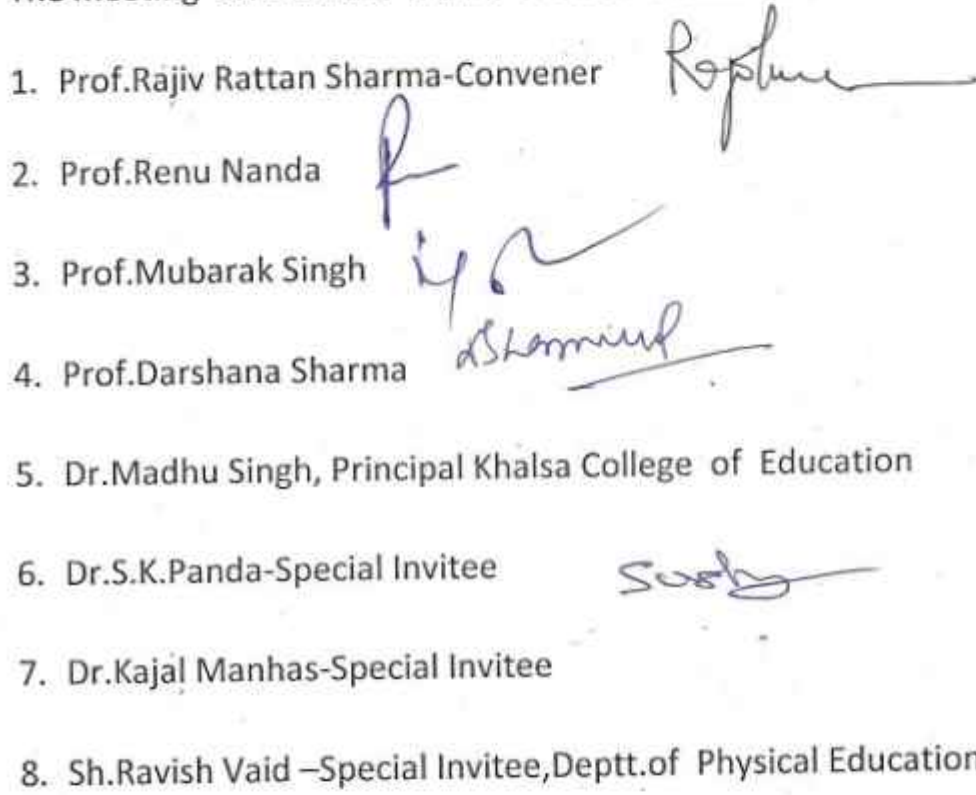 1. Prof.Rajiv Rattan Sharma-Convener
2. Prof.Renu Nanda
3. Prof.Mubarak Singh
4. Prof.Darshana Sharma
5. Dr.Madhu Singh, Principal Khalsa College of Education
6. Dr.S.K.Panda-Special Invitee
7. Dr.Kajal Manhas-Special Invitee
8. Sh.Ravish Vaid –Special Invitee,Deptt.of Physical Education